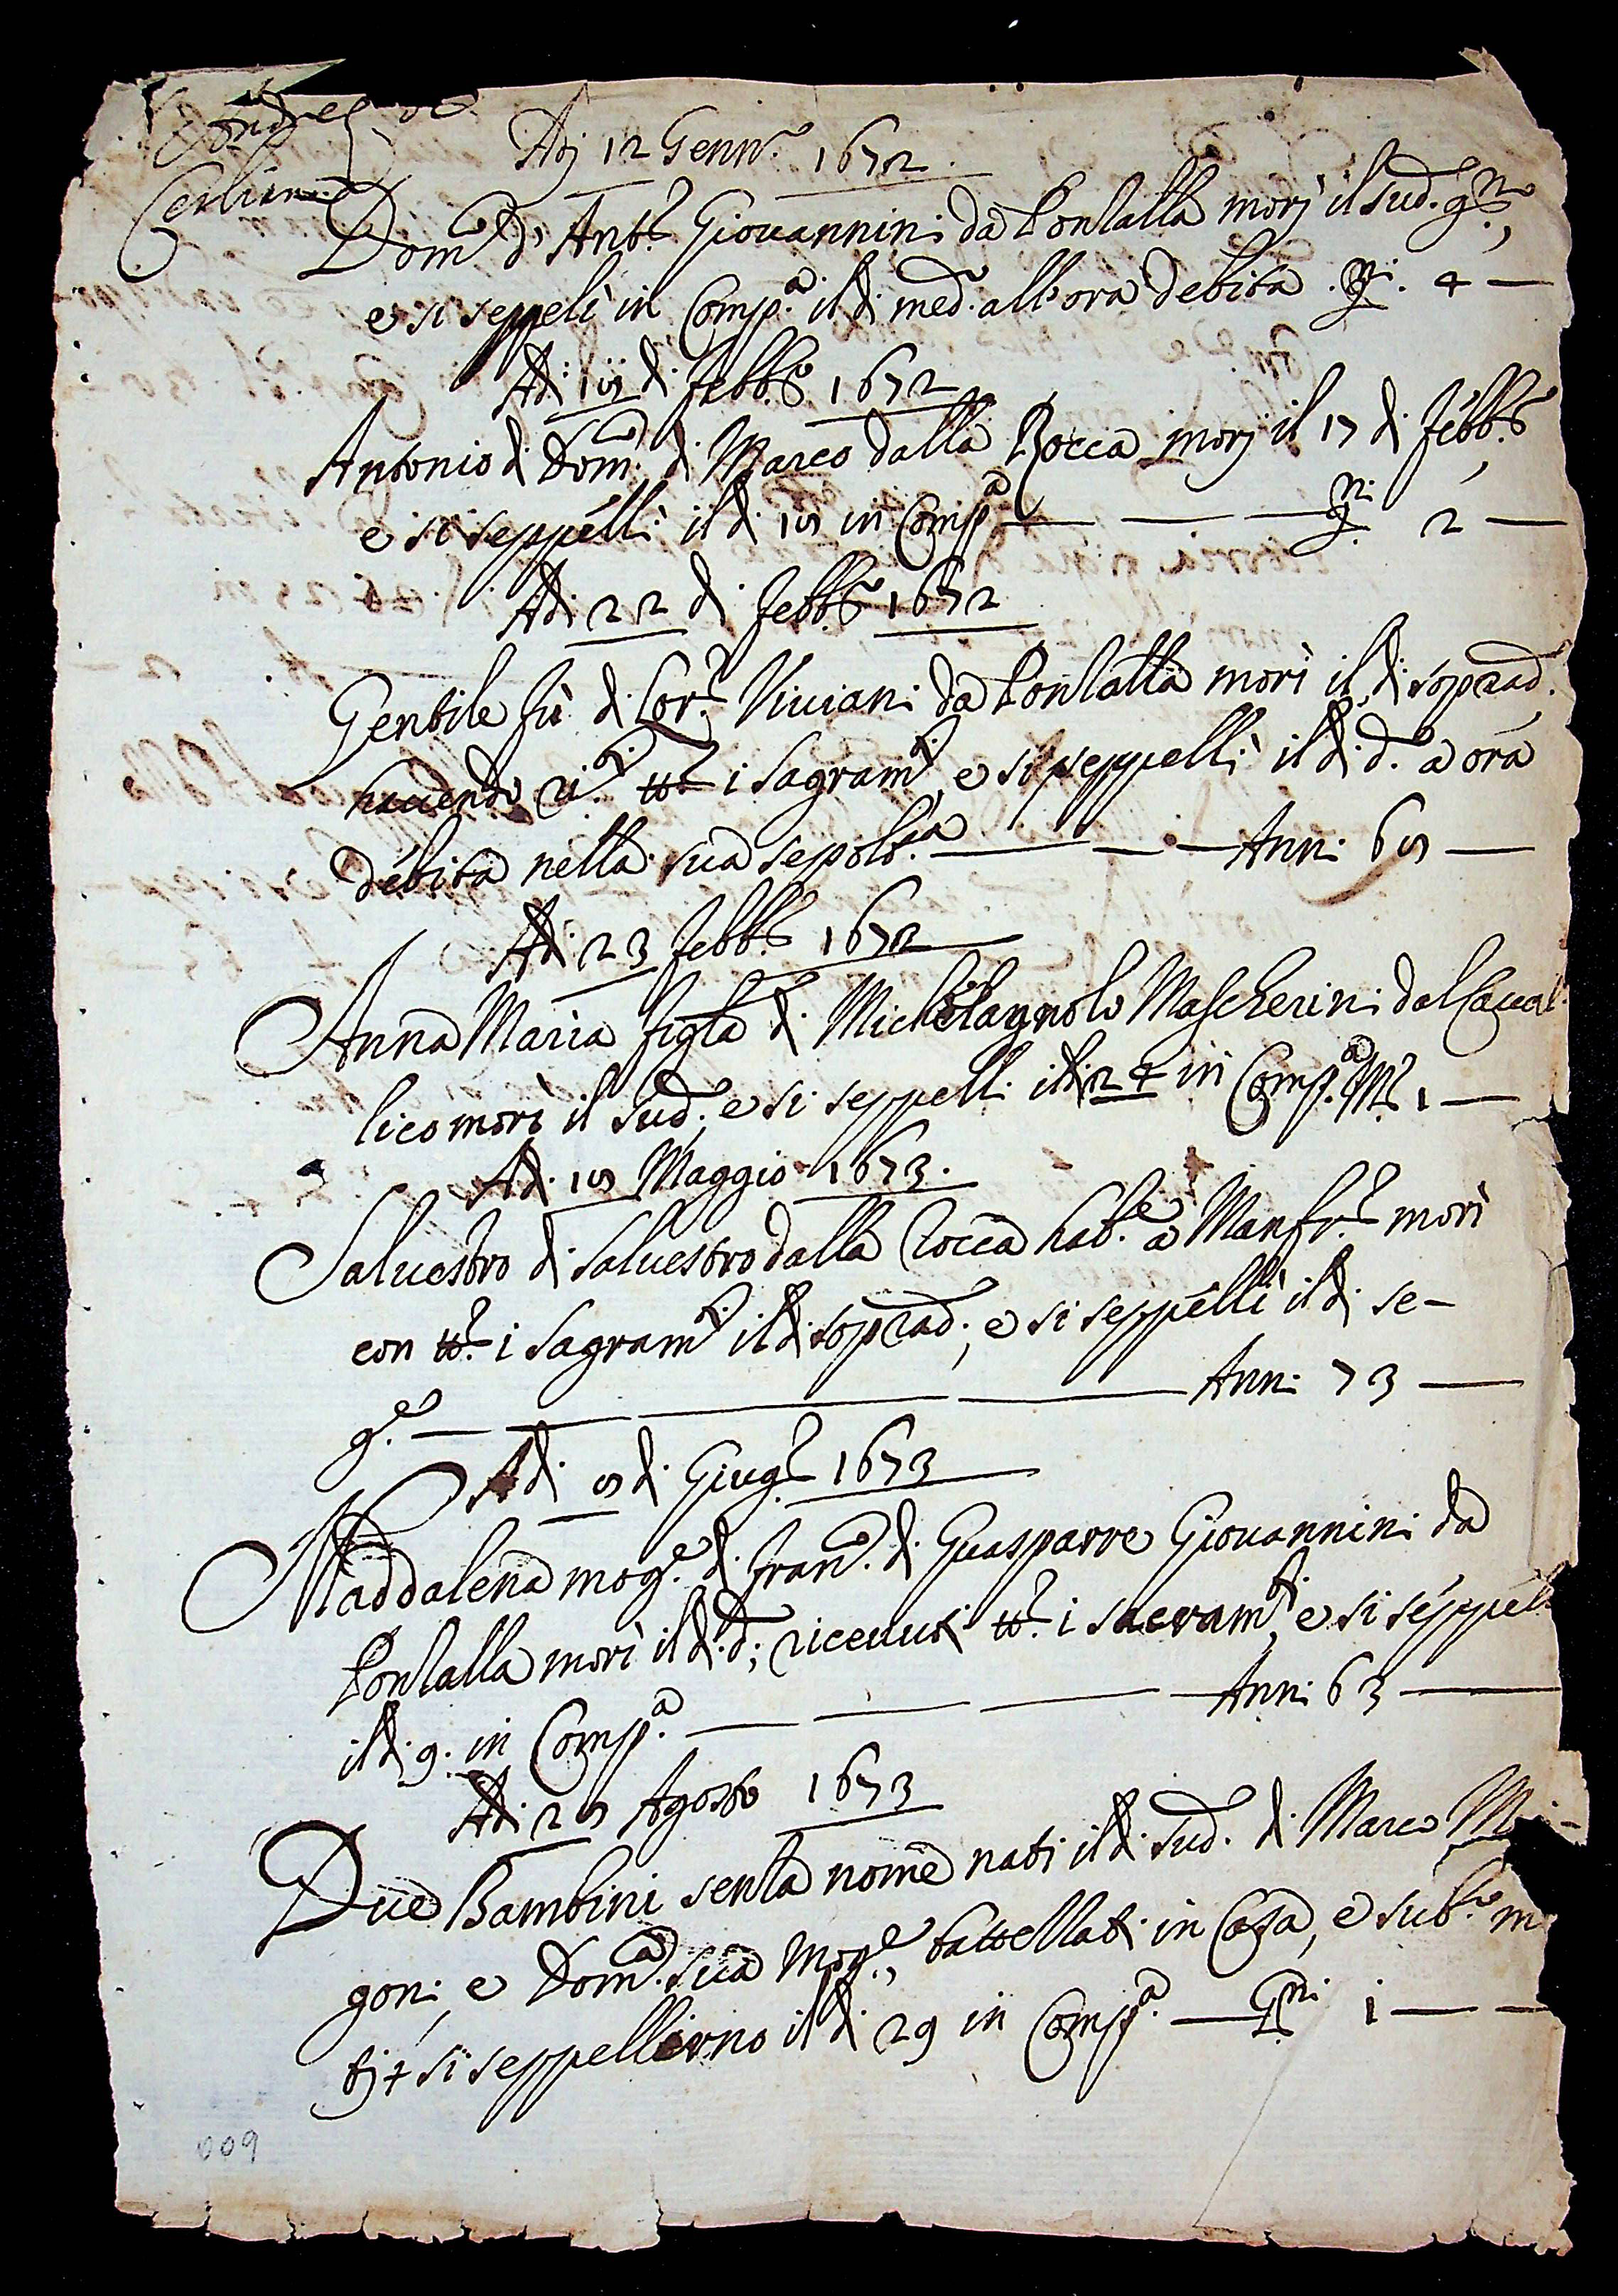 Adj 12 Genn.o 1672
Dom.o d'Ant.o Giovannini da Ponlalla morj il sud. g.no,
e si seppelì in Comp.a il dì med. all'ora debita . g.ni . 4 —
Adi 18 di Febb.o 1672
Antonio di Dom.o di Marco dalla Rocca morj il 17 di Febb.o,
e si seppellì il dì 18 in Comp.a — — — g.ni 2 —
Adi 22 di Febb.o 1672
Gentile fù di Lor.o Viviani da Ponlalla morì il dì soprad.
havendo ri.ti tt.i i Sagram.ti, e si seppellì il dì d.o a ora
debita nella sua sepolt.a — — — Anni 68 —
Adi 23 Febb.o 1672
Anna Maria figla di Michelagnolo Mascherini dal Caval
lico morì il sud., e si seppellì il dì 24 in Comp.a M. 1 —
Adi 18 Maggio 1673.
Salvestro di Salvestro dalla Rocca hab.e a Manfr.o morì
con tt.i i Sagram.ti il dì soprad., e si seppellì il dì se-
g.e — — — — Anni 73 —
Adi 8 di Giug.o 1673
Maddalena mog.e di Fran.o di Guasparre Giovannini da
Ponlalla morì il dì d.o, ricevuti tt.i i sacram.ti, e si seppell
il dì 9. in Comp.a — — — Anni 63 —
Adi 28 Agosto 1673
Due Bambini senla nome nati il dì sud. di Marco M
goni, e Dom.a sua Mog.e, battellati in Casa, e sub.o m
tj + si seppellirno il dì 29 in Comp.a — G.ni 1 — —
009